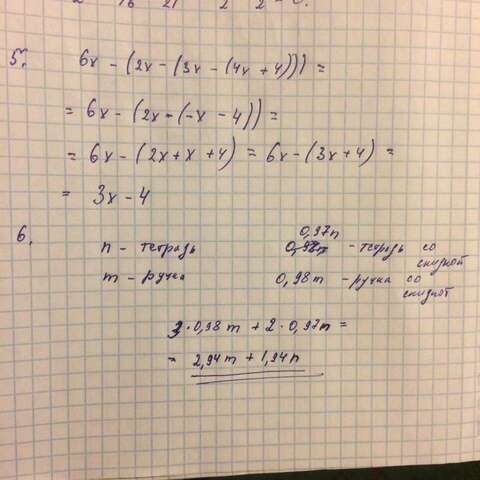 5. 6x - (2x - (3x - (4x + 4))) =
= 6x - (2x - (-x - 4)) =
= 6x - (2x + x + 4) = 6x - (3x + 4) =
= 3x - 4
6.
0,97n
n - тетрадь - тетрадь со скидкой
m - ручка 0,98m - ручка со скидкой
3 · 0,98m + 2 · 0,97n =
= 2,94m + 1,94n